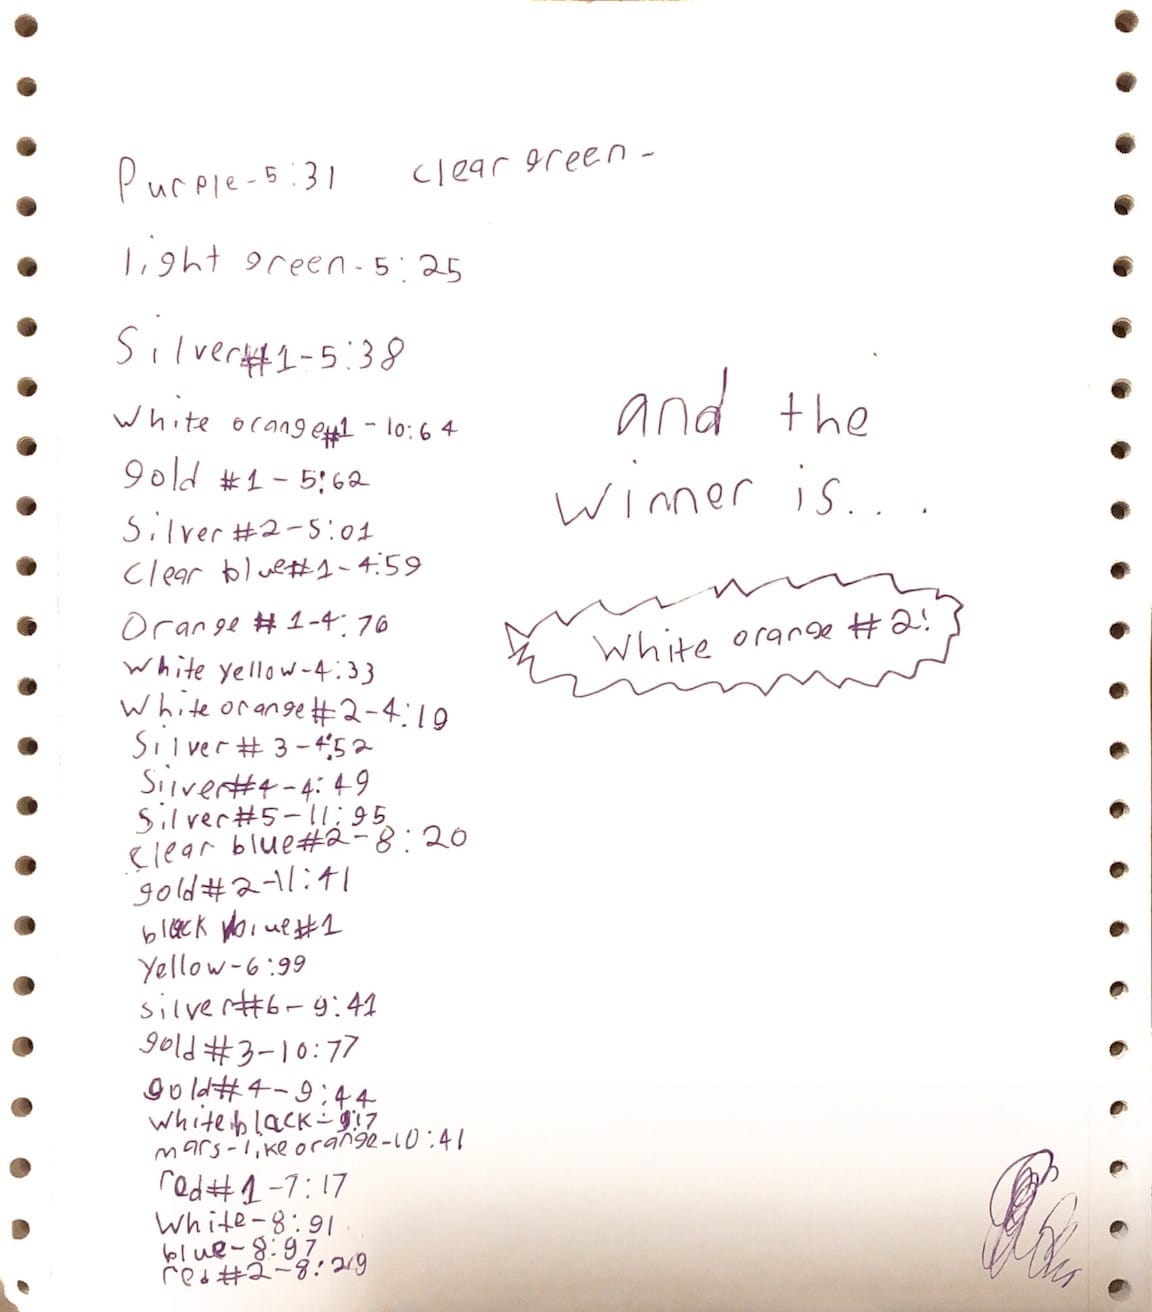 Purple-5:31 clear green-
light green-5:25
Silver#1-5:38
White orange#1-10:64
gold #1-5:62
Silver#2-5:01
Clear blue#1-4:59
Orange #1-4:76
White yellow-4:33
White orange#2-4:19
Silver#3-4:52
Silver#4-4:49
Silver#5-11:95
clear blue#2-8:20
gold#2-11:41
black blue#1
Yellow-6:99
silver#6-9:41
gold#3-10:77
gold#4-9:44
white black-9:17
mars-like orange-10:41
red#1-7:17
White-8:91
blue-8:97
red#2-8:29
and the
winner is....
White orange #2!